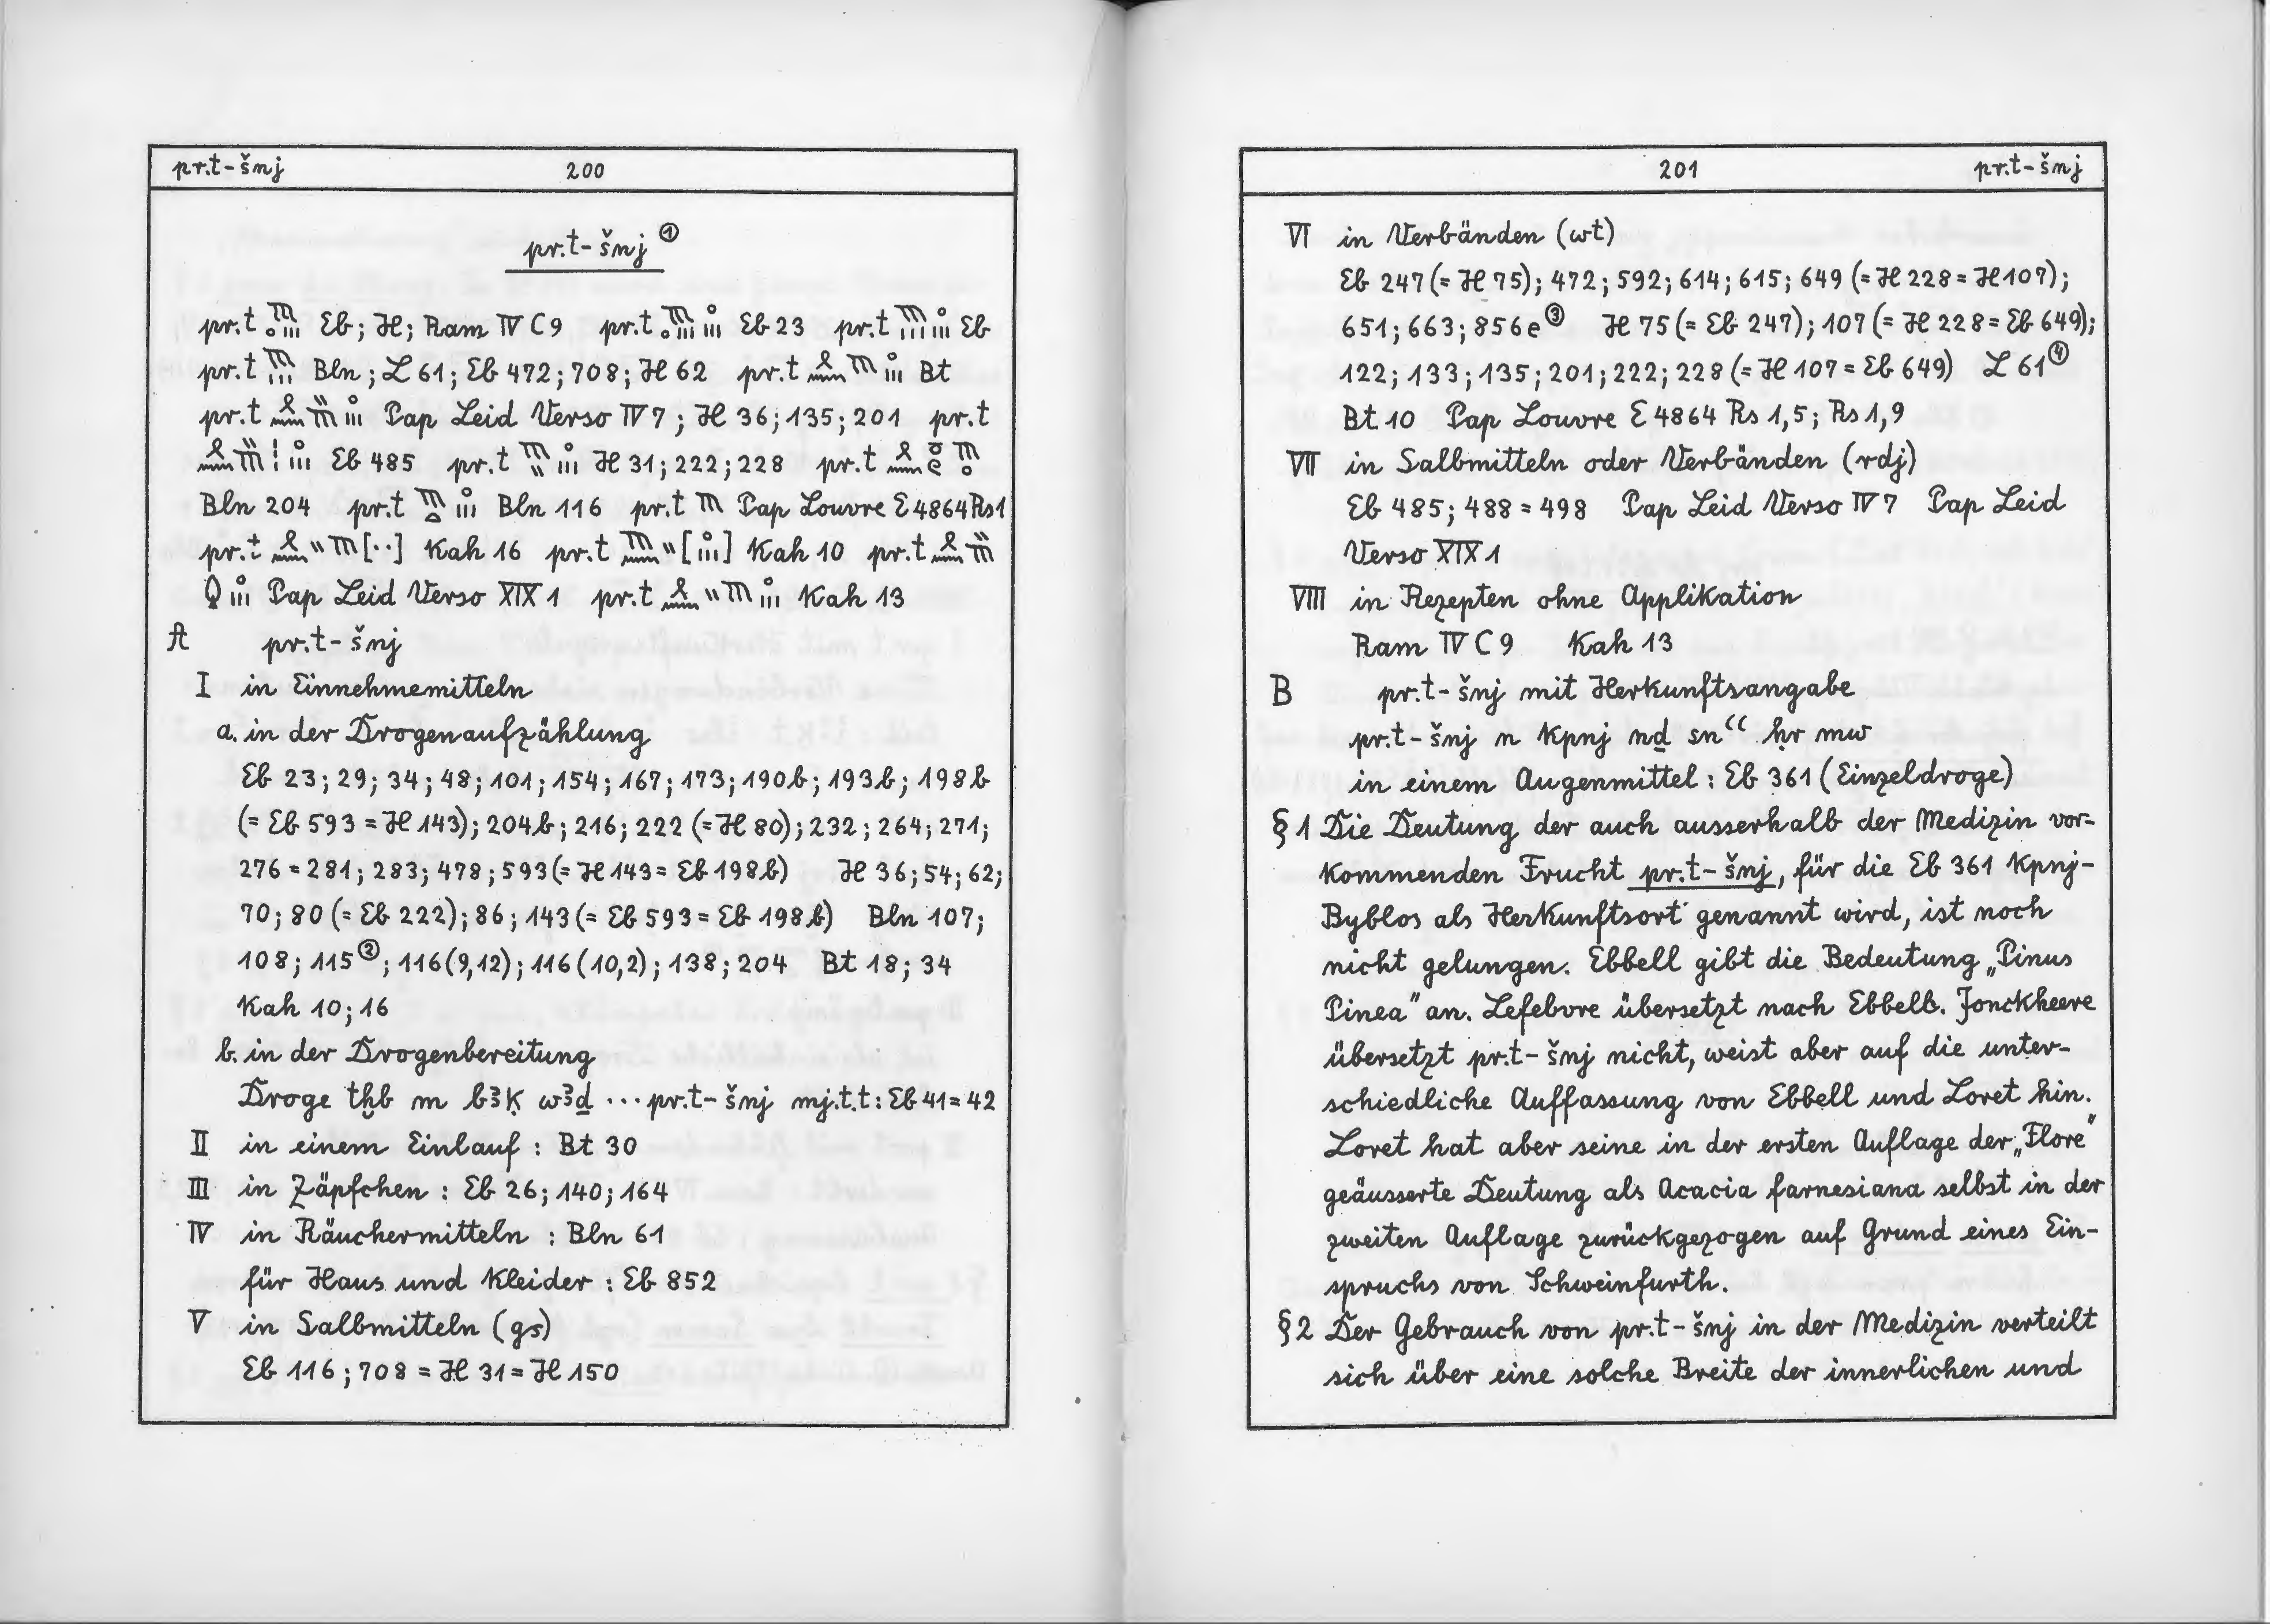 pr.t-šnj 200
pr.t-šnj ①
pr.t Eb; H; Ram IV C 9 pr.t Eb 23 pr.t Eb
pr.t Bln; L 61; Eb 472; 708; H 62 pr.t Bt
pr.t Pap Leid Verso IV 7; H 36; 135; 201 pr.t
Eb 485 pr.t H 31; 222; 228 pr.t
Bln 204 pr.t Bln 116 pr.t Pap Louvre E 4864 Rs 1
pr.t [··] Kah 16 pr.t [ ] Kah 10 pr.t
Pap Leid Verso XIX 1 pr.t Kah 13
A pr.t-šnj
I in Einnehmemitteln
a. in der Drogenaufzählung
Eb 23; 29; 34; 48; 101; 154; 167; 173; 190b; 193b; 198b
(= Eb 593 = H 143); 204b; 216; 222 (= H 80); 232; 264; 271;
276 = 281; 283; 478; 593 (= H 143 = Eb 198b) H 36; 54; 62;
70; 80 (= Eb 222); 86; 143 (= Eb 593 = Eb 198b) Bln 107;
108; 115②; 116 (9,12); 116 (10,2); 138; 204 Bt 18; 34
Kah 10; 16
b. in der Drogenbereitung
Droge tḫb m bꜣḳ wꜣḏ ··· pr.t-šnj mj.t.t: Eb 41 = 42
II in einem Einlauf : Bt 30
III in Zäpfchen : Eb 26; 140; 164
IV in Räuchermitteln : Bln 61
für Haus und Kleider : Eb 852
V in Salbmitteln (gs)
Eb 116; 708 = H 31 = H 150
201 pr.t-šnj
VI in Verbänden (wt)
Eb 247 (= H 75); 472; 592; 614; 615; 649 (= H 228 = H 107);
651; 663; 856e③ H 75 (= Eb 247); 107 (= H 228 = Eb 649);
122; 133; 135; 201; 222; 228 (= H 107 = Eb 649) L 61④
Bt 10 Pap Louvre E 4864 Rs 1,5; Rs 1,9
VII in Salbmitteln oder Verbänden (rdj)
Eb 485; 488 = 498 Pap Leid Verso IV 7 Pap Leid
Verso XIX 1
VIII in Rezepten ohne Applikation
Ram IV C 9 Kah 13
B pr.t-šnj mit Herkunftsangabe
pr.t-šnj n kpnj nḏ sn“ ḥr mw
in einem Augenmittel : Eb 361 (Einzeldroge)
§ 1 Die Deutung der auch ausserhalb der Medizin vor-
kommenden Frucht pr.t-šnj, für die Eb 361 kpnj-
Byblos als Herkunftsort genannt wird, ist noch
nicht gelungen. Ebbell gibt die Bedeutung „Pinus
Pinea” an. Lefebvre übersetzt nach Ebbell. Jonckheere
übersetzt pr.t-šnj nicht, weist aber auf die unter-
schiedliche Auffassung von Ebbell und Loret hin.
Loret hat aber seine in der ersten Auflage der „Flore”
geäusserte Deutung als Acacia farnesiana selbst in der
zweiten Auflage zurückgezogen auf Grund eines Ein-
spruchs von Schweinfurth.
§ 2 Der Gebrauch von pr.t-šnj in der Medizin verteilt
sich über eine solche Breite der innerlichen und